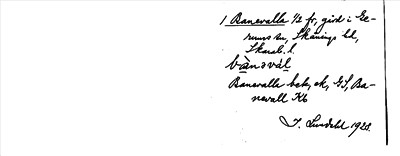 1 Banevalla ½ fr, gård i Ge-
rums sn, Skånings hd,
Skarab. l.
bànəvàl
Banevalla bok, ek, GS, Ba-
nevall Kb
J. Lundahl 1928.